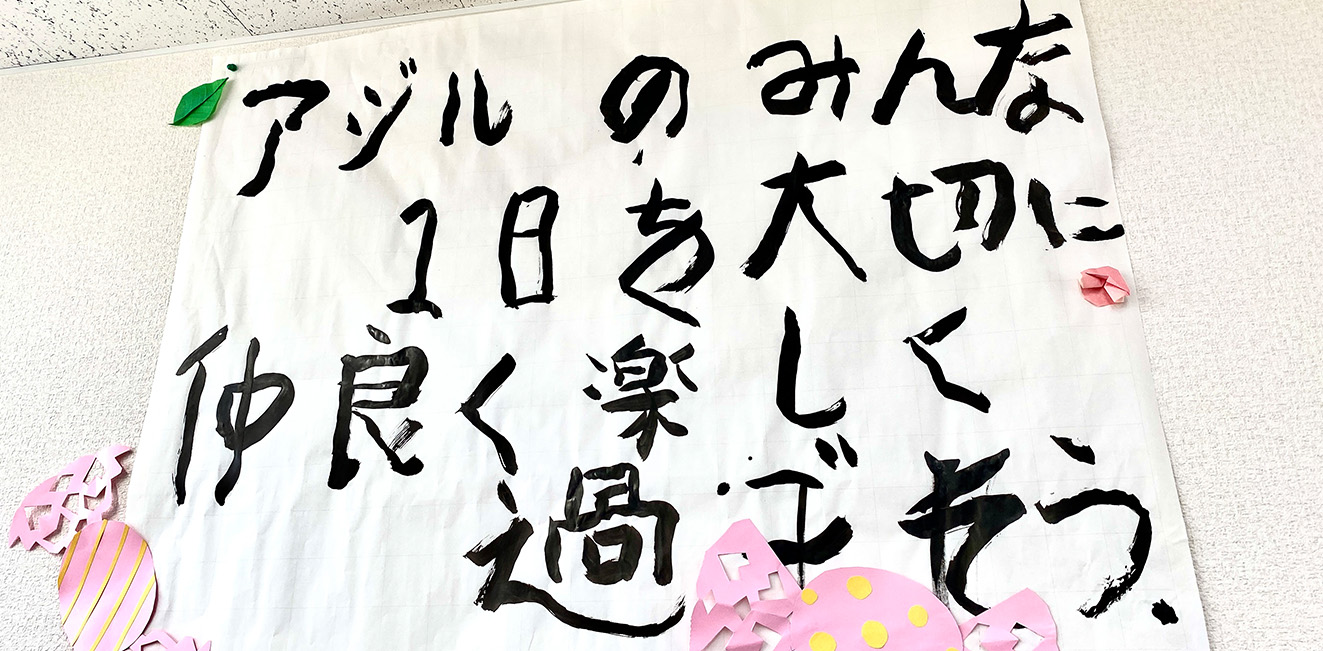 アジルのみんな
1日を大切に
仲良く楽しく
過ごそう.